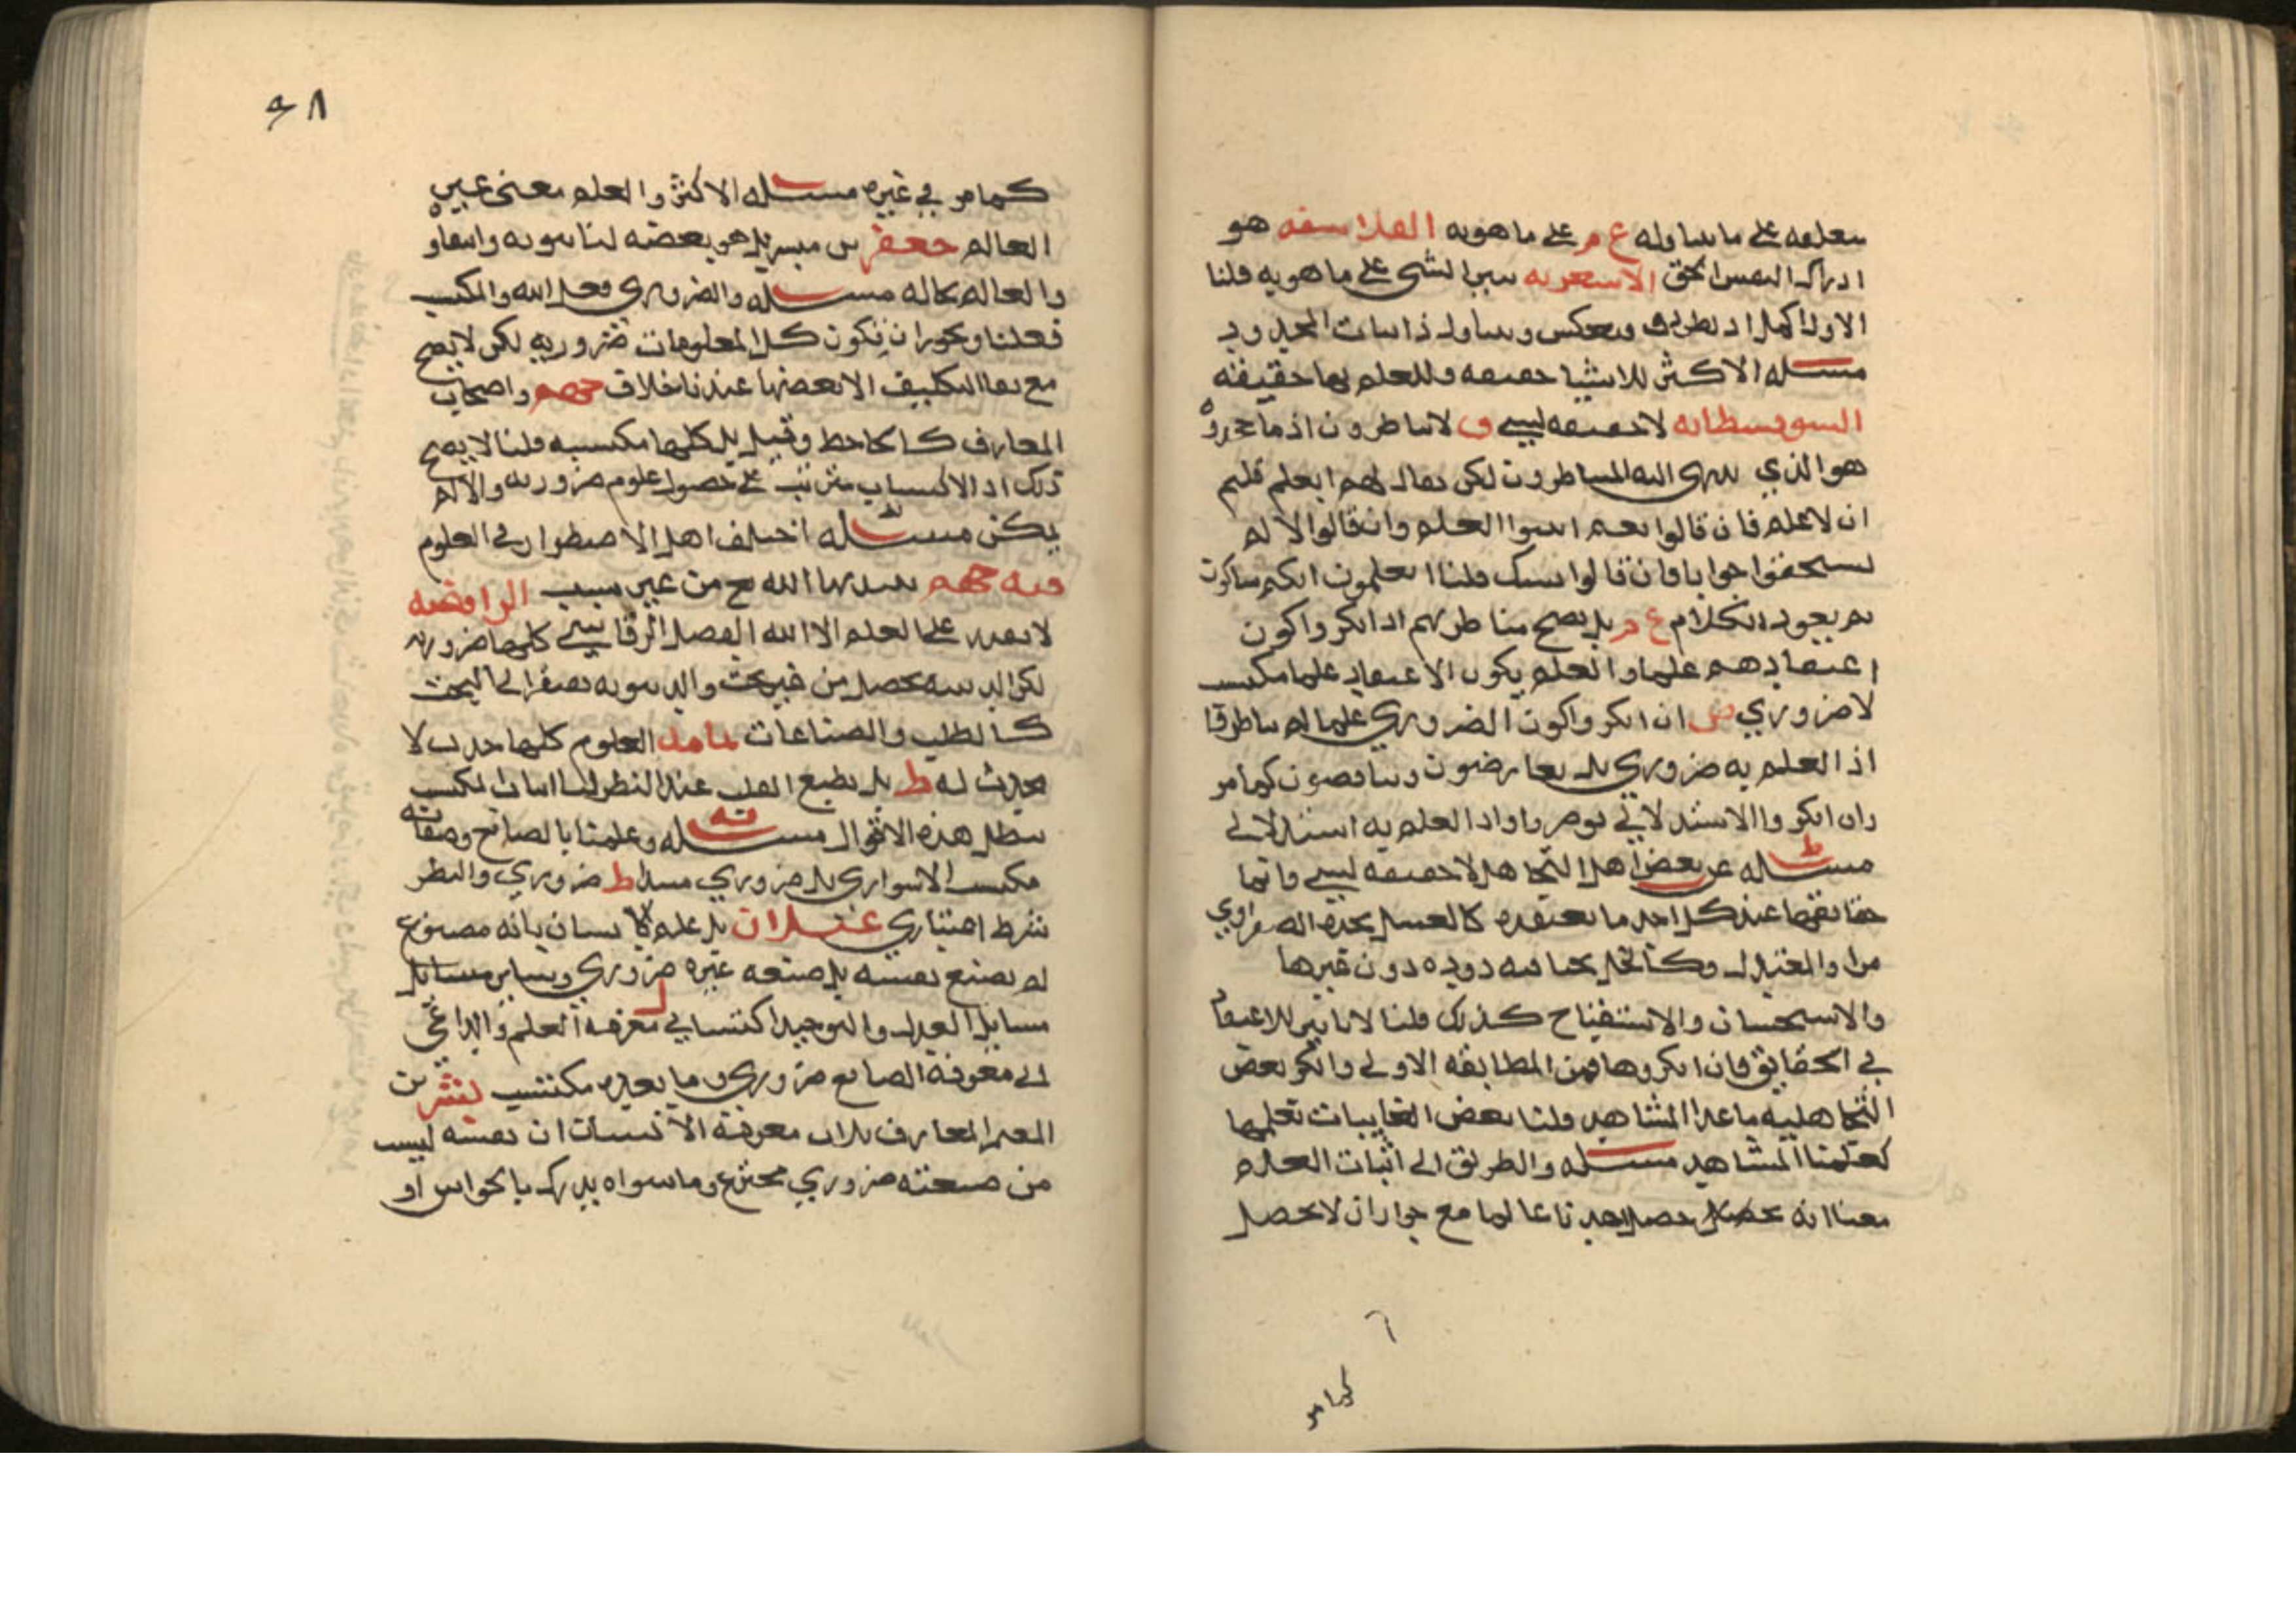 متعلقه على ما يتناوله ع م على ما هو به الفلاسفه هو
ادراك النفس الحق الاشعريه تبين الشي على ما هو به قلنا
الاول اكمل اذ يطرد وينعكس ويتناول ذاتيات المحدود
مسئله الاكثر للاشيا حقيقه وللعلم بها حقيقه
السوفسطائيه لا حقيقه لشي ق لا يناظرون اذ ما جحدوه
هو الذي ينتهي اليه المتناظرون لكن يقال لهم ابعلم قلتم
ان لا علم فان قالوا نعم اثبتوا العلم وان قالوا لا لم
يستحقوا جوابا فان قالوا نشك قلنا اتعلمون انكم شاكون
ثم يعود الكلام ع م بل يصح مناظرتهم اذا انكروا كون
اعتقادهم علما والعلم يكون الاعتقاد علما مكتسب
لا ضروري ض ان انكروا كون الضروري علما لم يناظروا
اذ العلم به ضروري بل يعارضون ويناقضون كما مر
وان انكروا الاستدلالي نوظروا اذ العلم به استدلالي
مسئله عن بعض اهل التجاهل لا حقيقه لشي وانما
حقائقها عند كل احد ما يعتقده كالعسل يجده الصفراوي
مرا والمعتدل وكالخل يحيا فيه دوده دون غيرها
والاستحسان والاستقباح كذلك قلنا لا تاثير للاعتقاد
في الحقايق فان انكروها فمن المطابقه الاولى وانكر بعض
التجاهليه ما عدا المشاهد قلنا بعض الغايبات نعلمها
كعلمنا المشاهد مسئله والطريق الى اثبات العلم
معنا انه يحصل احدنا عالما مع جواز ان لا يحصل
كما مر
٤٨
كما مر في غيره مسئله الاكثر والعلم معنى غير
العالم جعفر بن مبشر بل هو بعضه لنا ثبوته وانتفاؤه
والعالم بحاله مسئله والضروري فعل الله والمكتسب
فعلنا ويجوز ان تكون كل المعلومات ضروريه لكن لا يصح
مع بقا التكليف الا بعضها عندنا خلاف جهم واصحاب
المعارف كالجاحظ وقيل بل كلها مكتسبه قلنا لا يصح
ذلك اذ الاكتساب مترتب على حصول علوم ضروريه والا لم
يمكن مسئله اختلف اهل الاضطرار في العلوم
فيه جهم يبتديها الله تع من غير سبب الرافضه
لا يقدر على العلم الا الله الفضل الرقاشي كلها ضروريه
لكن الدينيه تحصل من غير بحث والدنيويه تفتقر الى البحث
كالطب والصناعات ثمامه العلوم كلها حدث لا
محدث له ط بل بطبع القلب عند النظر لنا اثبات المكتسب
يبطل هذه الاقوال مسئله وعلمنا بالصانع وصفاته
مكتسب الاسواري بل ضروري مبتدا ط ضروري والنظر
شرط اختياري غيلان بل علم الانسان بانه مصنوع
لم يصنع نفسه بل صنعه غيره ضروري وساير مسايل
مسايل العدل والتوحيد اكتسابي معرفه العلم والداعي
الى معرفة الصانع ضروري وما بعده مكتسب بشر بن
المعتمر المعارف ثلاث معرفة الانسان ان نفسه ليست
من صنعته ضروري مخترع وما سواه يدرك بالحواس او